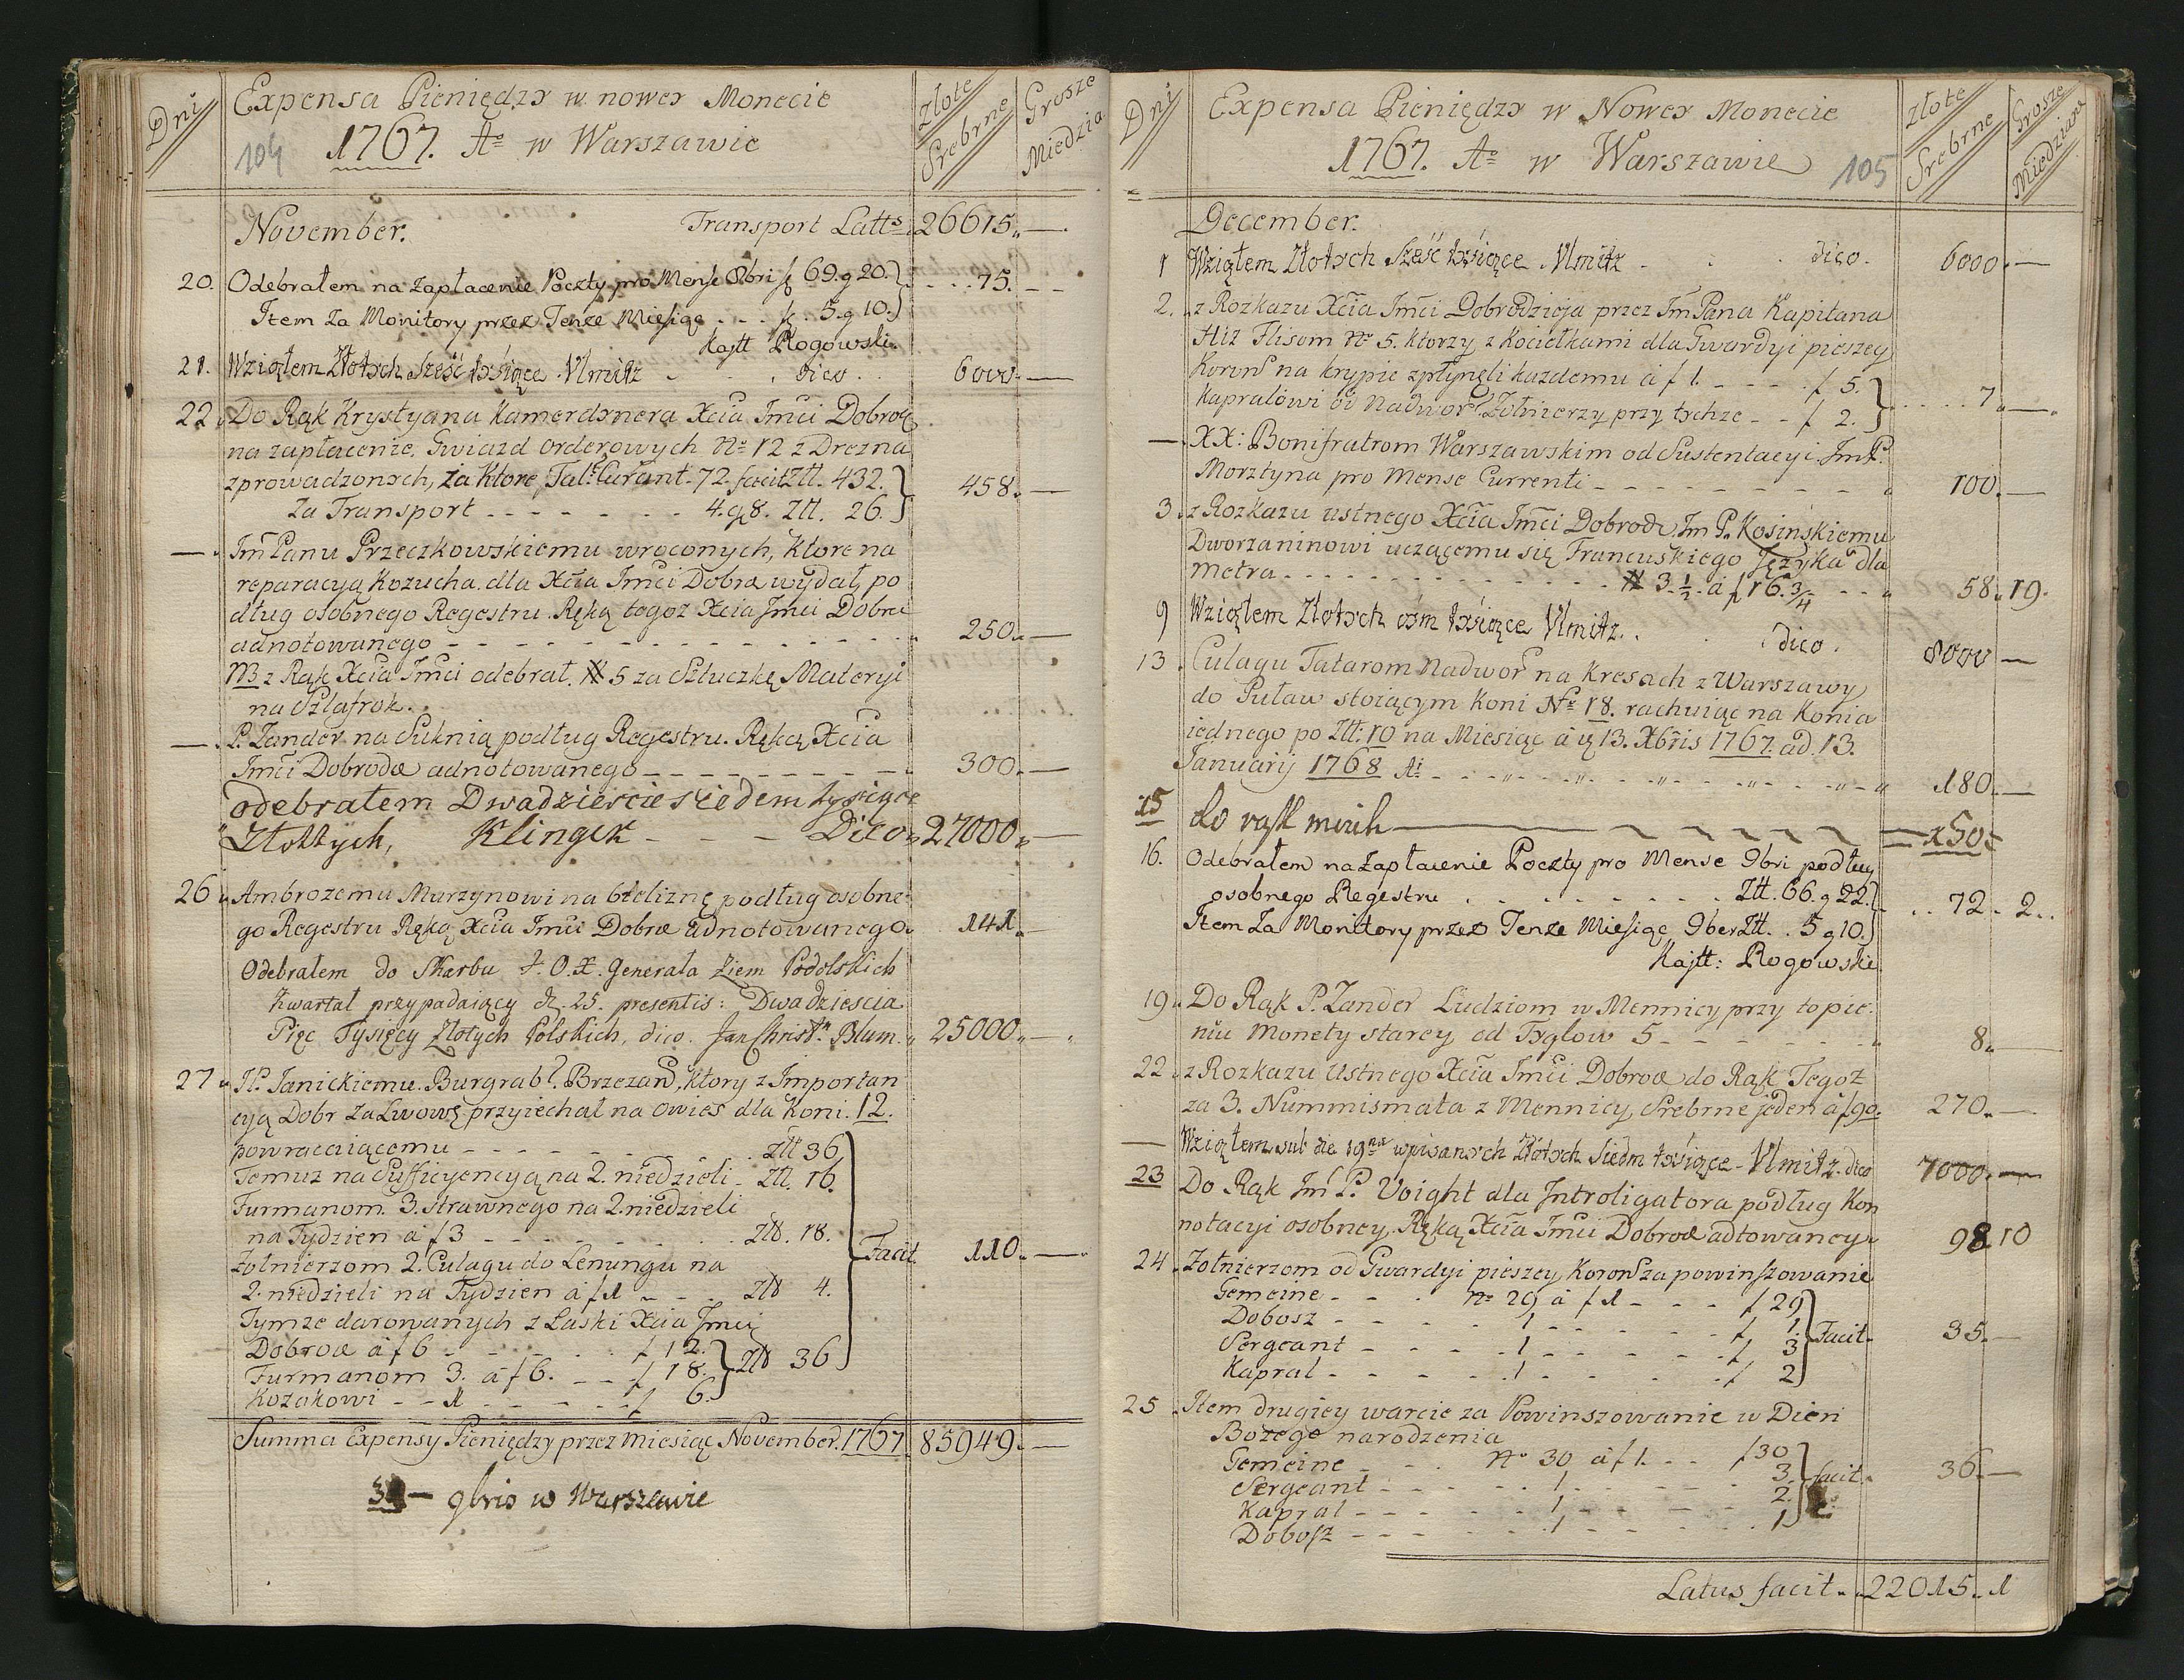 Dni
Expensa Pieniędzy w nowey Monecie
Złote Srebrne
Grosze Miedzia
104 1767. Aº w Warszawie
November. Transport Lattˢ 26615 „—.
20. Odebrałem na Zapłacenie Poczty pro Mense 8bri f 69. g 20. } . . . 75. – –
Item Za Monitory przez Tenże Miesiąc - - - f. 5. g 10.
Kajtt Rogowski.
21. Wziąłem Złotych Sześć tysięce Vlmitz - . dico . 6000. —
22. Do Rąk Krystyana Kamerdynera Xcia Imci Dobrod
na zapłacenie Gwiazd orderowych Nº 12 z Drezna
zprowadzonych, za Ktore Tal: Curant. 72. facit Ztt. 432. } 458. —
Za Transport - - - - - - - 4. g 8. Ztt. 26.
— Im Panu Przeczkowskiemu wroconych, Ktore na
reparacyą Kozucha dla Xcia Imci Dobrd wydał, po
dług osobnego Regestru Ręką tegoz Xcia Imci Dobrd
adnotowanego - - - - - - - - - - - - 250. —
NB z Rąk Xcia Imci odebrał # 5 za Sztuczkę Materyi
na Szlafrok.
—. P. Zander na Suknią podług Regestru. Ręką Xcia
Imci Dobrod adnotowanego - - - - - - - - - 300. —
odebrałem Dwadzieście siedem tysięce
Złottych, Klingek - - - Dico „ 27000 „ —
26 „ Ambrozemu Murzynowi na bieliznę podług osobne-
go Regestru Ręką Xcia Imci Dobrd adnotowanego. 141. —
Odebrałem do Skarbu J. O. X. Generała Ziem Podolskich
Kwartał przypadaiący d. 25. presentis: Dwadziescia
Pięc Tysięcy Złotych Polskich, dico. Jan Christⁿ Blum. „ 25000 „ — „
27 „ JP. Janickiemu. Burgrabᵗ. Brzezan, Ktory z Importan
cyą Dobr Za Lwowę przyiechał na owies dla Koni. 12.
powracaiącemu - - - - - - - . Ztt 36
Temuz na Sufficyencyą na 2. niedzieli - Ztt. 16.
Furmanom. 3. strawnego na 2. niedzieli
na Tydzien á f 3 - - - - - - - - Ztt. 18.
Zołnierzom 2. Culagu do Lenungu na } Facit 110. —
2. niedzieli na Tydzien á f 1 - - . Ztt 4.
Tymze darowanych z Łaski Xcia Imci
Dobrod á f 6 - - - - . . f 12.
Furmanom 3. á f 6. - - f 18. } Ztt 36
Kozakowi - - 1 - - - - - f 6.
Summa Expensy Pieniędzy przez miesiąc November. 1767 85949. —
— 9bris w Warszawie
Dni
Expensa Pieniędzy w Nowey Monecie
Złote Srebrne
Grosze Miedziane
1767. Aº w Warszawie 105
December.
1 Wziąłem Złotych Sześć tysięce Vlmitz . . . dico. 6000. —
2. z Rozkazu Xcia Imci Dobrodzieja przez Im Pana Kapitana
Hiz Flisom Nº 5. Ktorzy z Kociełkami dla Gwardyi pieszey
Koron na krypie zpłyneli kazdemu á f 1. - - - . f 5. } . . . . 7 „ — „
Kapralowi od Nadwor Zołnierzy przy tychze - - f 2.
—. XX: Bonifratrom Warszawskim od Sustentacyi Im P.
Morztyna pro Mense Currenti - - - - - - - - „ 100. —
3 „ z Rozkazu ustnego Xcia Imci Dobrod Im P. Kosinskiemu
Dworzaninowi uczącemu się Francuskiego Języka dla
metra - - - - - - - - - - - # 3 ½ á f 16 ¾ - - „ 58 „ 19.
9 Wziąłem Złotych ósm tysięce Vlmitz. . . dico . 8000 —
13. Culagu Tatarom Nadwor na Kresach z Warszawy
do Puław stoiącym Koni Nº 18. rachuiąc na Konia
iednego po Ztt: 10 na Miesiąc á d 13. Xbris 1767. ad. 13.
Januarij 1768 Ai - - - - - - - - - - 180. —
15 do rąk moich — — — — — — 150 —
16. Odebrałem na Zapłacenie Poczty pro Mense 9bri podług
osobnego Regestru . . . . . . . Ztt. 66. g 22. } . . 72 . 2 . .
Item Za Monitory przez Tenze Miesiąc 9ber Ztt. . 5 g 10.
Kajtt: Rogowski
19 „ Do Rąk P. Zander Ludziom w Mennicy przy topie-
niu Monety starey od Tyglow 5 - - - - - - - „ 8 „ —
22 „ z Rozkazu Ustnego Xcia Imci Dobrod do Rąk Tegoz
za 3. Nummismata z Mennicy Srebrne jeden á f 90. 270. —
— Wziąłem sub die 19na wpisanych Złotych Siedm tysięce - Vlmitz. dico 7000. —
23 Do Rąk Im P. Voight dla Introligatora podług Kon
notacyi osobney Ręką Xcia Imci Dobrod adtowaney „ 98 10
24. Zołnierzom od Gwardyi pieszey Koron za powinszowanie
Gemeine - - . Nº 29 á f 1 - - - f 29
Dobosz - - - - - 1 - - - - - - f 1
Sergeant - - - - 1 - - - - - f 3 } Facit. 35. —
Kapral - - - - - 1 - - - - . f 2
25. Item drugiey warcie za Powinszowanie w Dien
Bożego narodzenia
Gemeine - - . Nº 30 á f 1. - - f 30
Sergeant - - - - - 1 - - - - - - 3. } facit. 36. —
Kapral - - - - - - 1 - - - - - - 2.
Dobosz - - - - - - 1 - - - - - . 1
Latus facit. „ 22015. 1